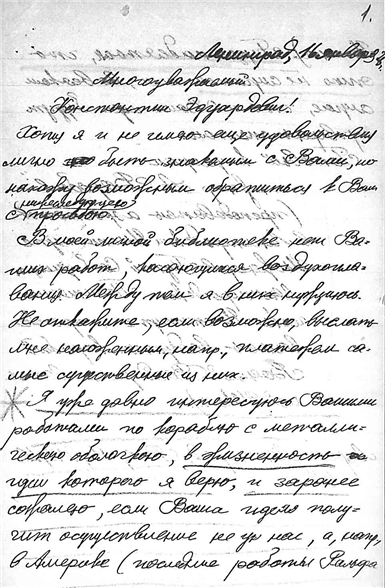 1.
Ленинград, 16 января 3
Многоуважаемый
Константин Эдуардович!
Хотя я и не имею еще удовольствия
лично быть знакомым с Вами, но
нахожу возможным обратиться к Вам
нижеследующею
просьбою.
В моей малой библиотеке нет Ва-
ших работ, касающихся воздухопла-
вания. Между тем я в них нуждаюсь.
Не откажите, если возможно, выслать
мне наложенным, напр., платежем са-
мые существенные из них.
Я уже давно интересуюсь Вашими
работами по кораблю с металли-
ческою оболочкою, в жизненность
идеи которого я верю, и заранее
сожалею, если Ваша идея полу-
чит осуществление не у нас, а, напр.,
в Америке (последние работы Ральфа